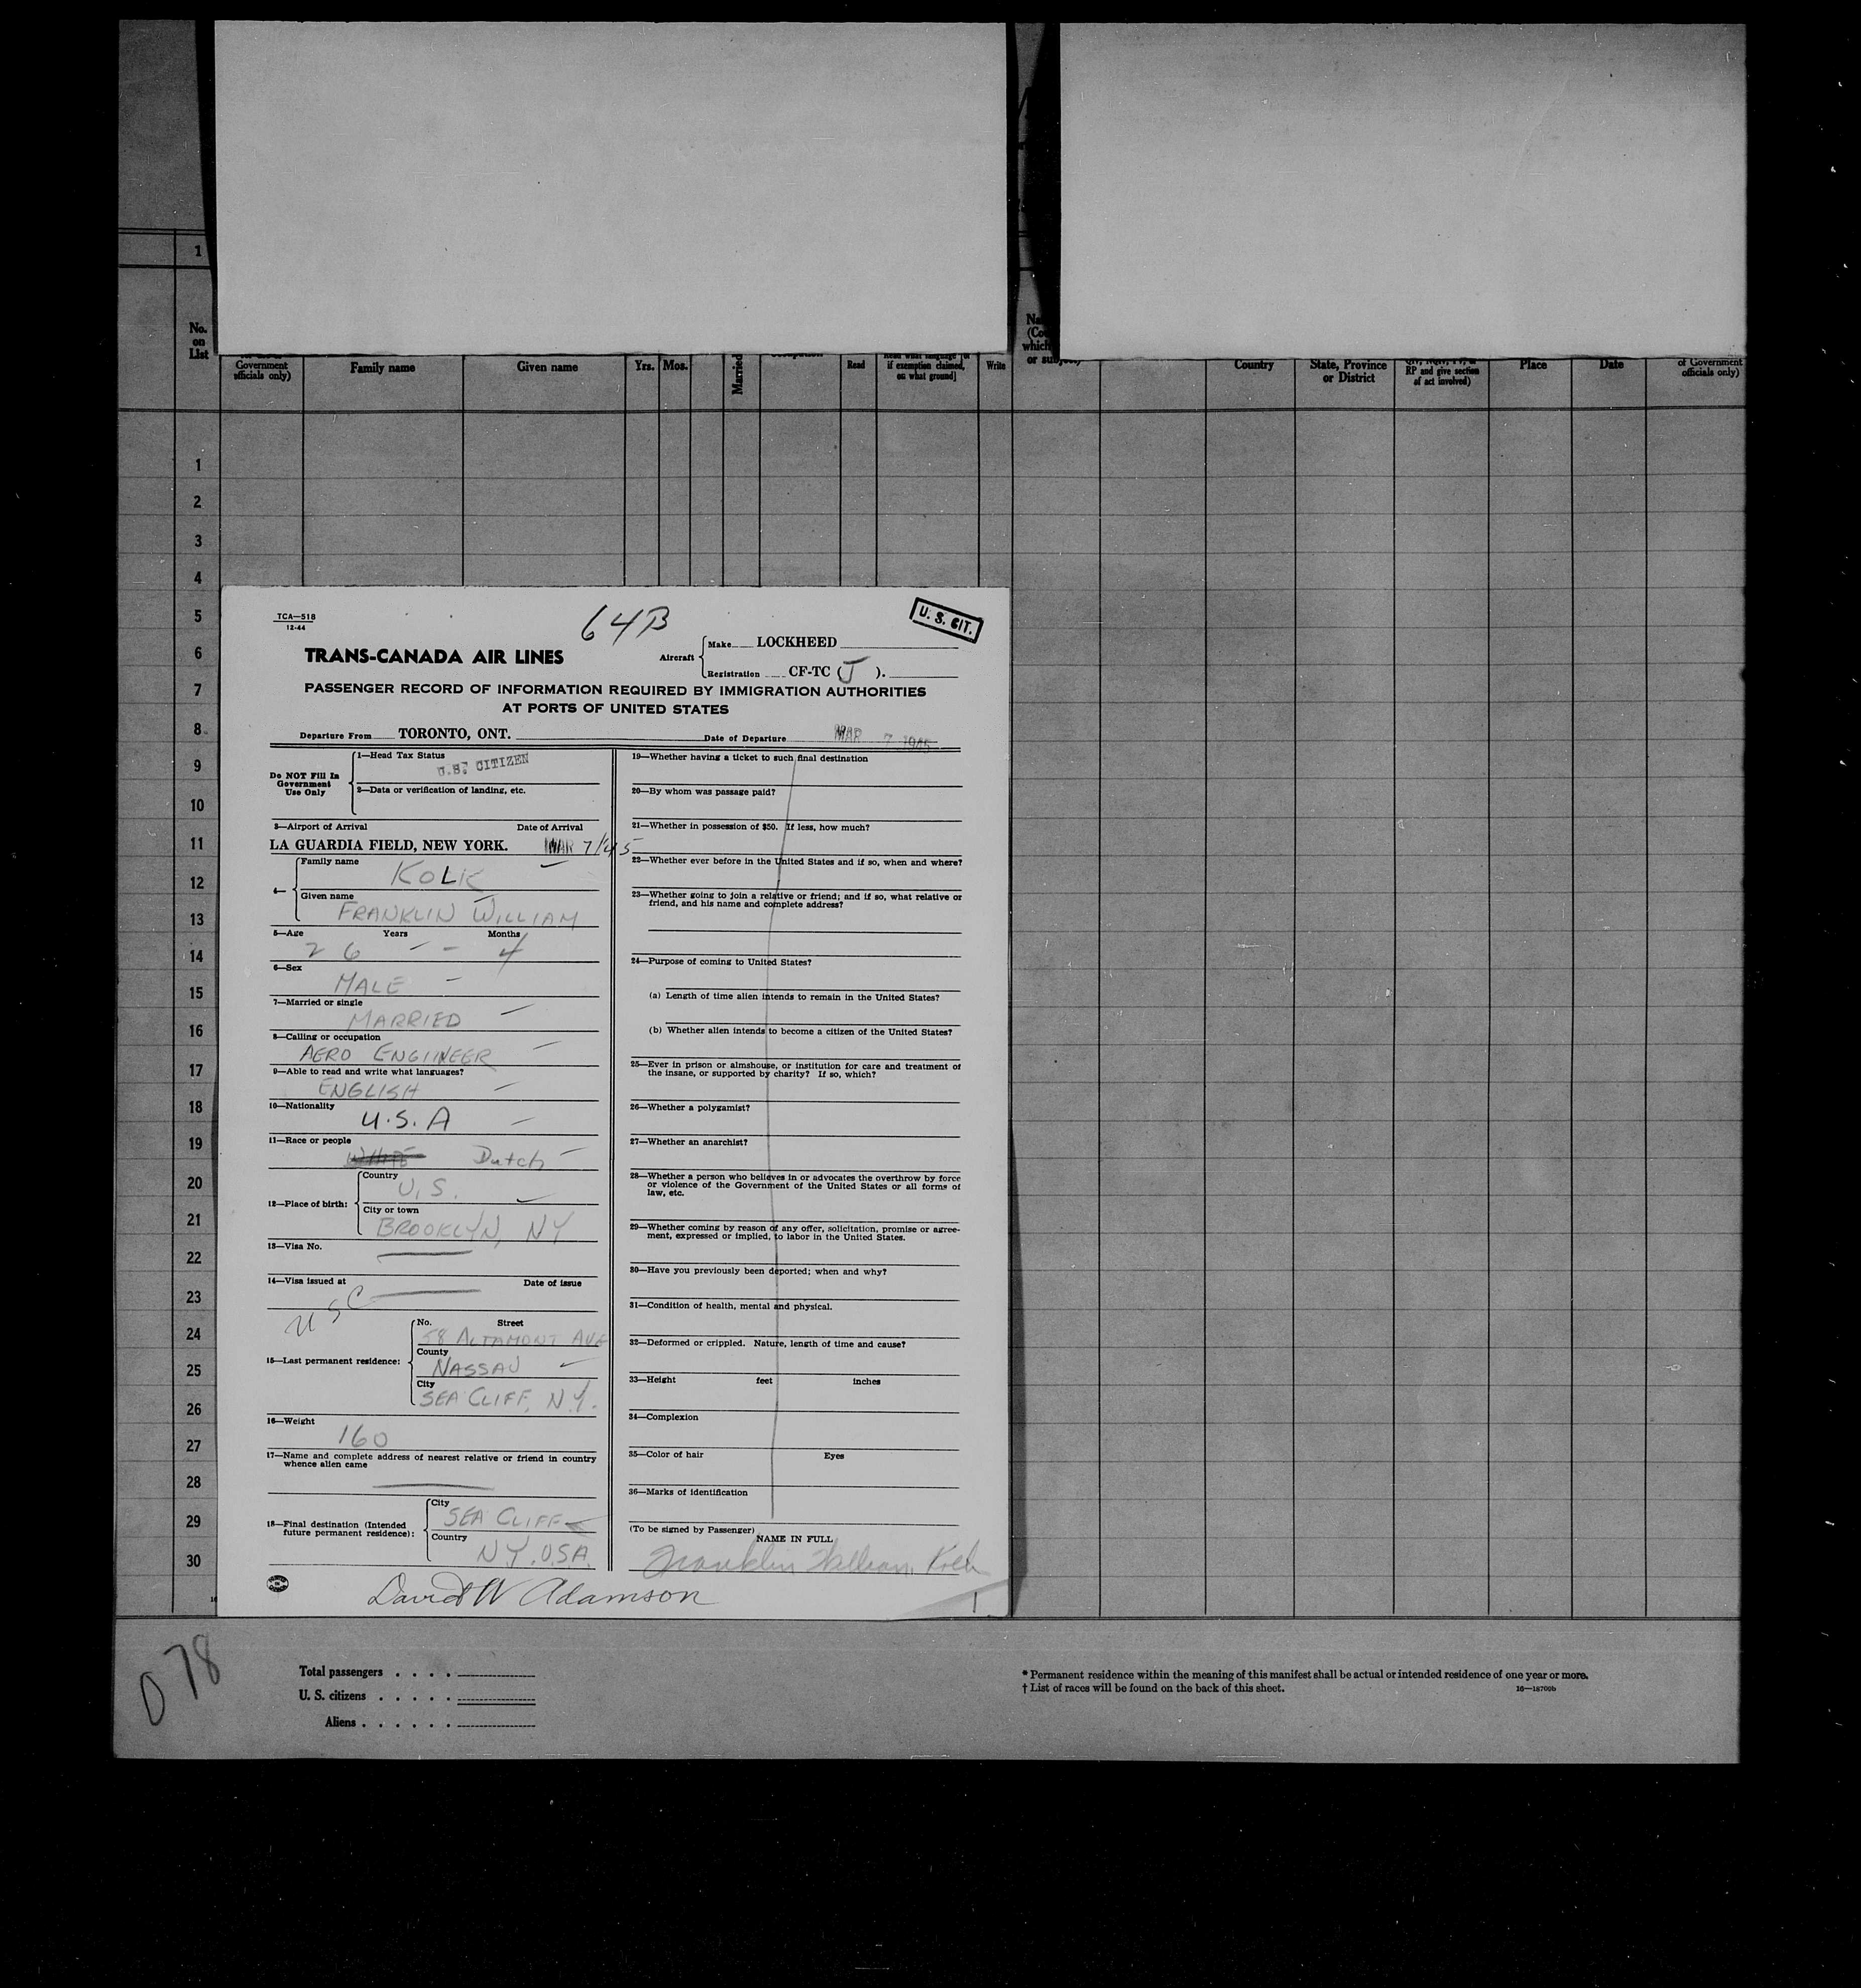 1
No.
on
List
Government
officials only)
Family name
Given name
Yrs.
Mos.
Married
Read
if exemption claimed,
on what ground]
Write
which
Country
State, Province
or District
RP and give section
of act involved)
Place
Date
of Government
officials only)
1
2
3
4
5
6
7
8
9
10
11
12
13
14
15
16
17
18
19
20
21
22
23
24
25
26
27
28
29
30
TCA—518
12-44
64B
U. S. CIT.
TRANS-CANADA AIR LINES
Aircraft
Make LOCKHEED
Registration CF-TC (J).
PASSENGER RECORD OF INFORMATION REQUIRED BY IMMIGRATION AUTHORITIES
AT PORTS OF UNITED STATES
Departure From TORONTO, ONT.
Date of Departure MAR 7 1945
Do NOT Fill In
Government
Use Only
1—Head Tax Status
U.S. CITIZEN
2—Data or verification of landing, etc.
3—Airport of Arrival Date of Arrival
LA GUARDIA FIELD, NEW YORK. MAR 7/45
4—
Family name
KOLK
Given name
FRANKLIN WILLIAM
5—Age Years Months
26 – – 4
6—Sex
MALE –
7—Married or single
MARRIED –
8—Calling or occupation
AERO ENGINEER –
9—Able to read and write what languages?
ENGLISH –
10—Nationality
U.S.A –
11—Race or people
WHITE Dutch –
12—Place of birth:
Country
U.S.
City or town
BROOKLYN, NY
13—Visa No.
14—Visa issued at Date of issue
USC
15—Last permanent residence:
No. Street
58 ALTAMONT AVE
County
NASSAU
City
SEA CLIFF, N.Y.
16—Weight
160
17—Name and complete address of nearest relative or friend in country
whence alien came
18—Final destination (Intended
future permanent residence):
City
SEA CLIFF
Country
N.Y. U.S.A.
19—Whether having a ticket to such final destination
20—By whom was passage paid?
21—Whether in possession of $50. If less, how much?
22—Whether ever before in the United States and if so, when and where?
23—Whether going to join a relative or friend; and if so, what relative or
friend, and his name and complete address?
24—Purpose of coming to United States?
(a) Length of time alien intends to remain in the United States?
(b) Whether alien intends to become a citizen of the United States?
25—Ever in prison or almshouse, or institution for care and treatment of
the insane, or supported by charity? If so, which?
26—Whether a polygamist?
27—Whether an anarchist?
28—Whether a person who believes in or advocates the overthrow by force
or violence of the Government of the United States or all forms of
law, etc.
29—Whether coming by reason of any offer, solicitation, promise or agree-
ment, expressed or implied, to labor in the United States.
30—Have you previously been deported; when and why?
31—Condition of health, mental and physical.
32—Deformed or crippled. Nature, length of time and cause?
33—Height feet inches
34—Complexion
35—Color of hair Eyes
36—Marks of identification
(To be signed by Passenger)
NAME IN FULL
Franklin William Kolk
David W Adamson
1
078
Total passengers . . . .
U. S. citizens . . . . .
Aliens . . . . . .
* Permanent residence within the meaning of this manifest shall be actual or intended residence of one year or more.
† List of races will be found on the back of this sheet.
16—18700b